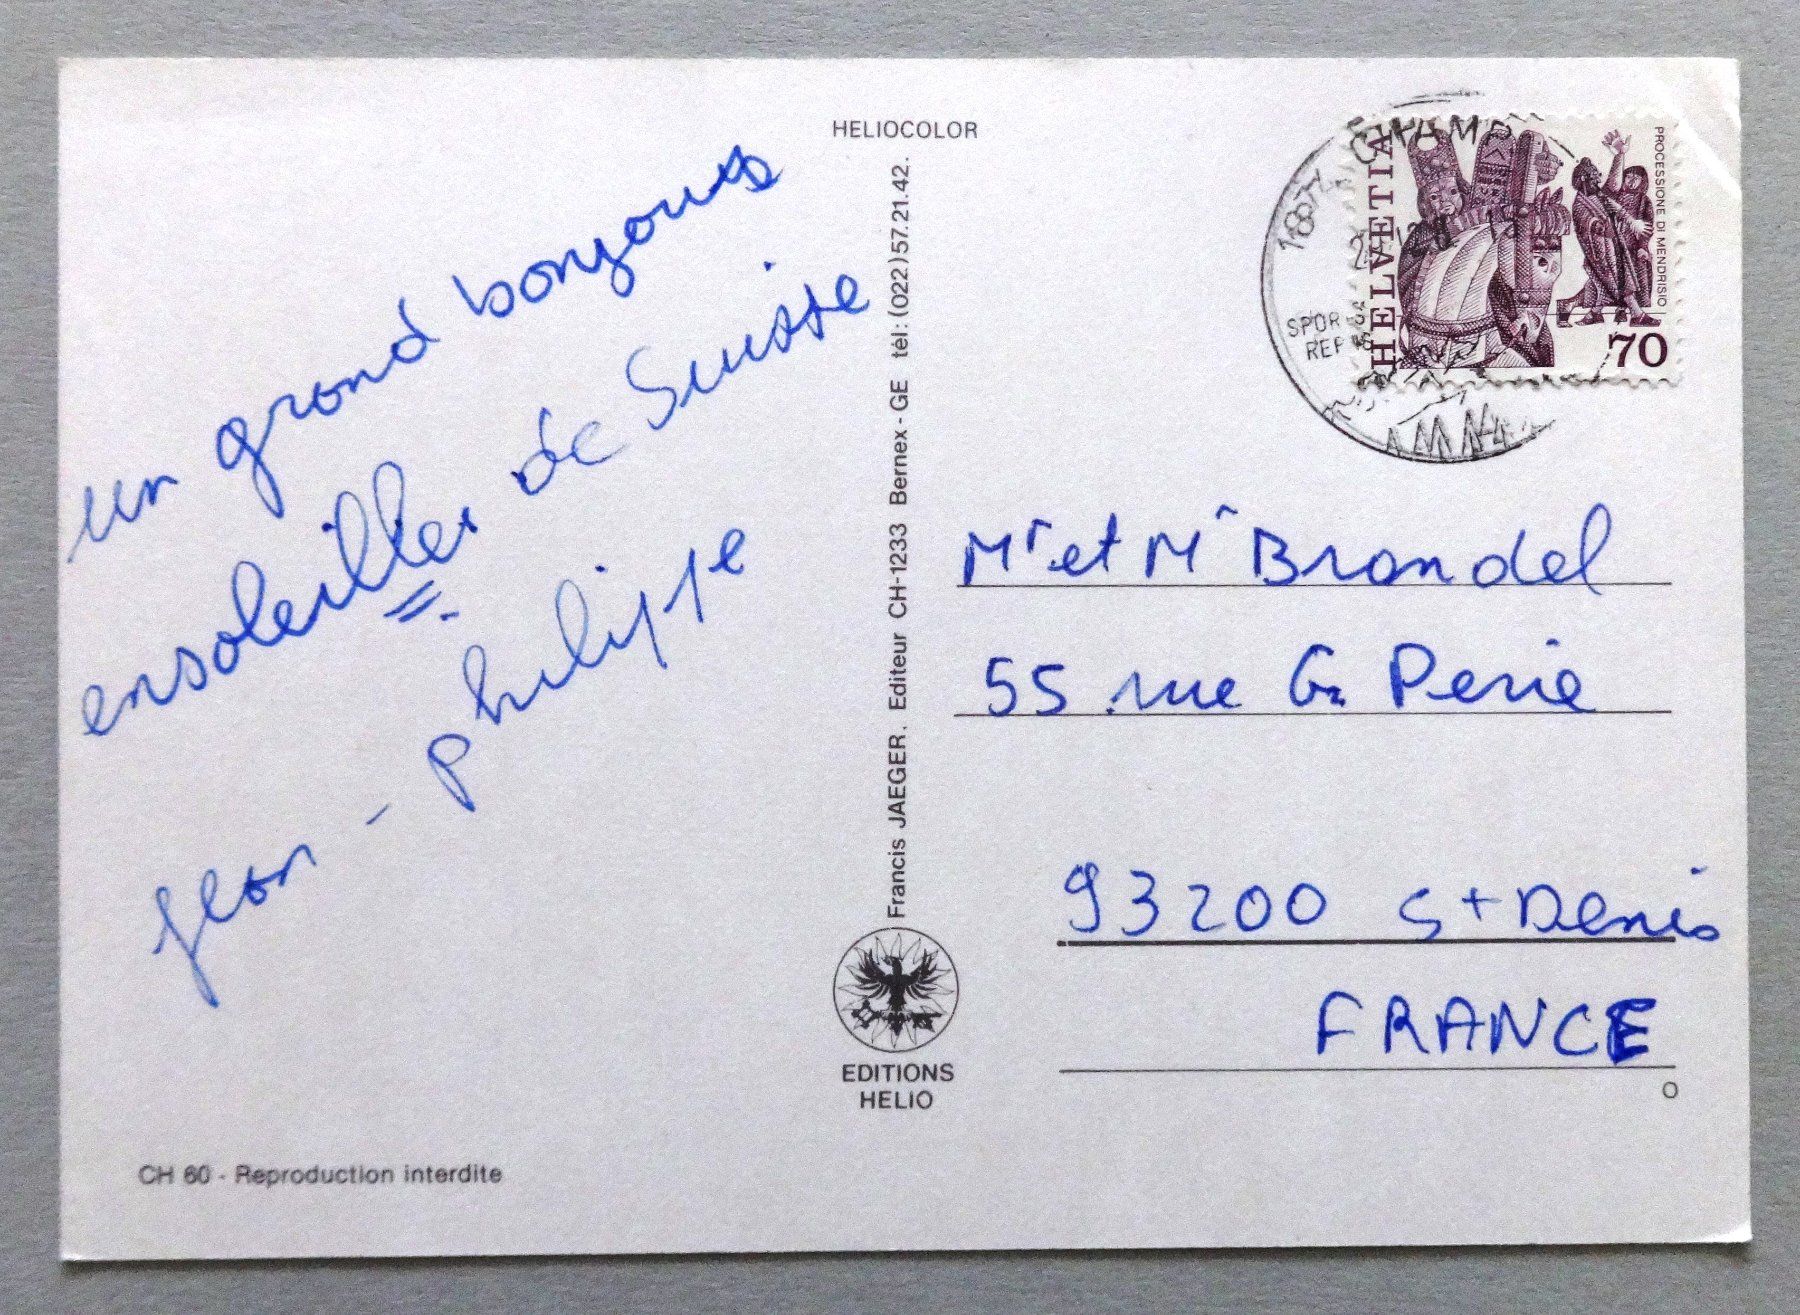 HELIOCOLOR
un grand bonjour
ensoleillé de Suisse
Jean-philippe
CH 60 - Reproduction interdite
Francis JAEGER. Editeur CH-1233 Bernex - GE tél: (022) 57.21.42.
EDITIONS
HELIO
1874 CHAMP
SPORTS
REPOS
HELVETIA
PROCESSIONE DI MENDRISIO
70
Mr et M Brandel
55 rue G. Perie
93200 St Denis
FRANCE
O